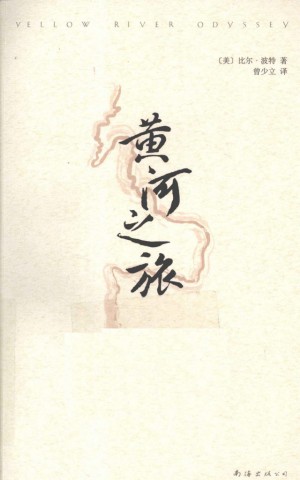 YELLOW RIVER ODYSSEY
〔美〕比尔·波特 著
曾少立 译
黄河之旅
南海出版公司